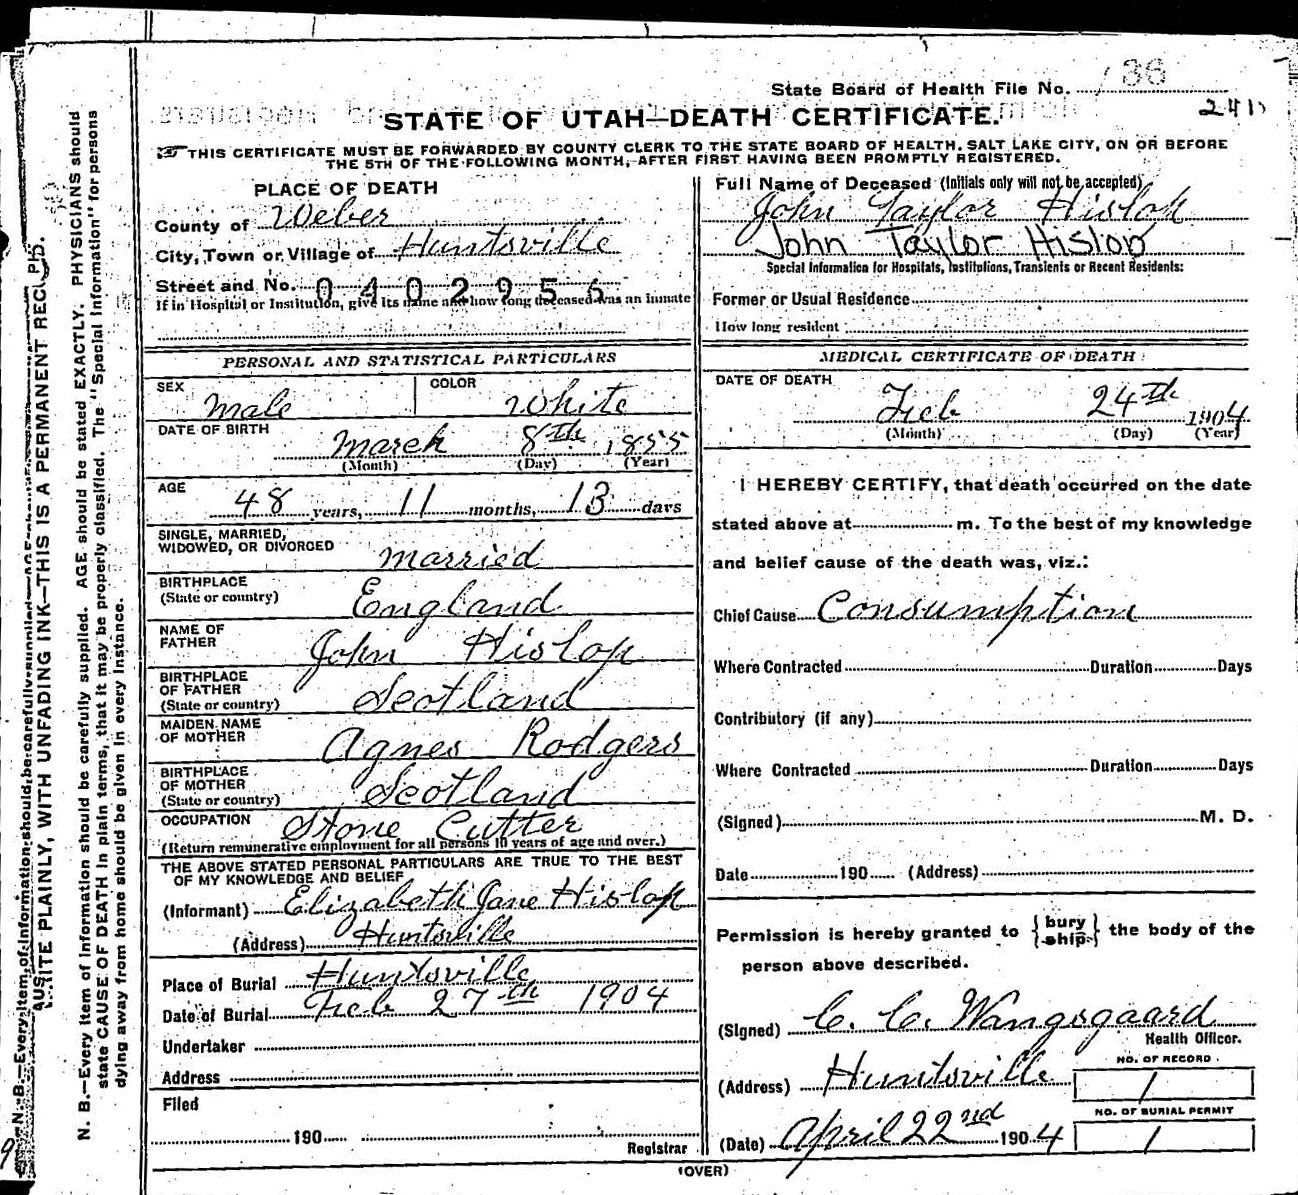 State Board of Health File No. 36
241
STATE OF UTAH—DEATH CERTIFICATE.
☞ THIS CERTIFICATE MUST BE FORWARDED BY COUNTY CLERK TO THE STATE BOARD OF HEALTH, SALT LAKE CITY, ON OR BEFORE
THE 5TH OF THE FOLLOWING MONTH, AFTER FIRST HAVING BEEN PROMPTLY REGISTERED.
PLACE OF DEATH
County of Weber
City, Town or Village of Huntsville
Street and No. 0402956
If in Hospital or Institution, give its name and how long deceased was an inmate
Full Name of Deceased (Initials only will not be accepted)
John Taylor Hislop
John Taylor Hislop
Special Information for Hospitals, Institutions, Transients or Recent Residents:
Former or Usual Residence
How long resident
PERSONAL AND STATISTICAL PARTICULARS
SEX Male COLOR White
DATE OF BIRTH
March 8th 1855
(Month) (Day) (Year)
AGE
48 years, 11 months, 13 days
SINGLE, MARRIED,
WIDOWED, OR DIVORCED married
BIRTHPLACE
(State or country) England
NAME OF
FATHER John Hislop
BIRTHPLACE
OF FATHER
(State or country) Scotland
MAIDEN NAME
OF MOTHER Agnes Rodgers
BIRTHPLACE
OF MOTHER
(State or country) Scotland
OCCUPATION Stone Cutter
(Return remunerative employment for all persons 10 years of age and over.)
THE ABOVE STATED PERSONAL PARTICULARS ARE TRUE TO THE BEST
OF MY KNOWLEDGE AND BELIEF
(Informant) Elizabeth Jane Hislop
(Address) Huntsville
Place of Burial Huntsville
Date of Burial Feb 27th 1904
Undertaker
Address
Filed
190
Registrar
MEDICAL CERTIFICATE OF DEATH
DATE OF DEATH
Feb 24th 1904
(Month) (Day) (Year)
I HEREBY CERTIFY, that death occurred on the date
stated above at m. To the best of my knowledge
and belief cause of the death was, viz.:
Chief Cause Consumption
Where Contracted Duration Days
Contributory (if any)
Where Contracted Duration Days
(Signed) M. D.
Date 190 (Address)
Permission is hereby granted to {bury
ship} the body of the
person above described.
(Signed) C. C. Wangsgaard
Health Officer.
(Address) Huntsville
NO. OF RECORD
1
(Date) April 22nd 1904
NO. OF BURIAL PERMIT
1
(OVER)
WRITE PLAINLY, WITH UNFADING INK—THIS IS A PERMANENT RECORD.
N. B.—Every item of information should be carefully supplied. AGE should be stated EXACTLY. PHYSICIANS should
state CAUSE OF DEATH in plain terms, that it may be properly classified. The "Special Information" for persons
dying away from home should be given in every instance.